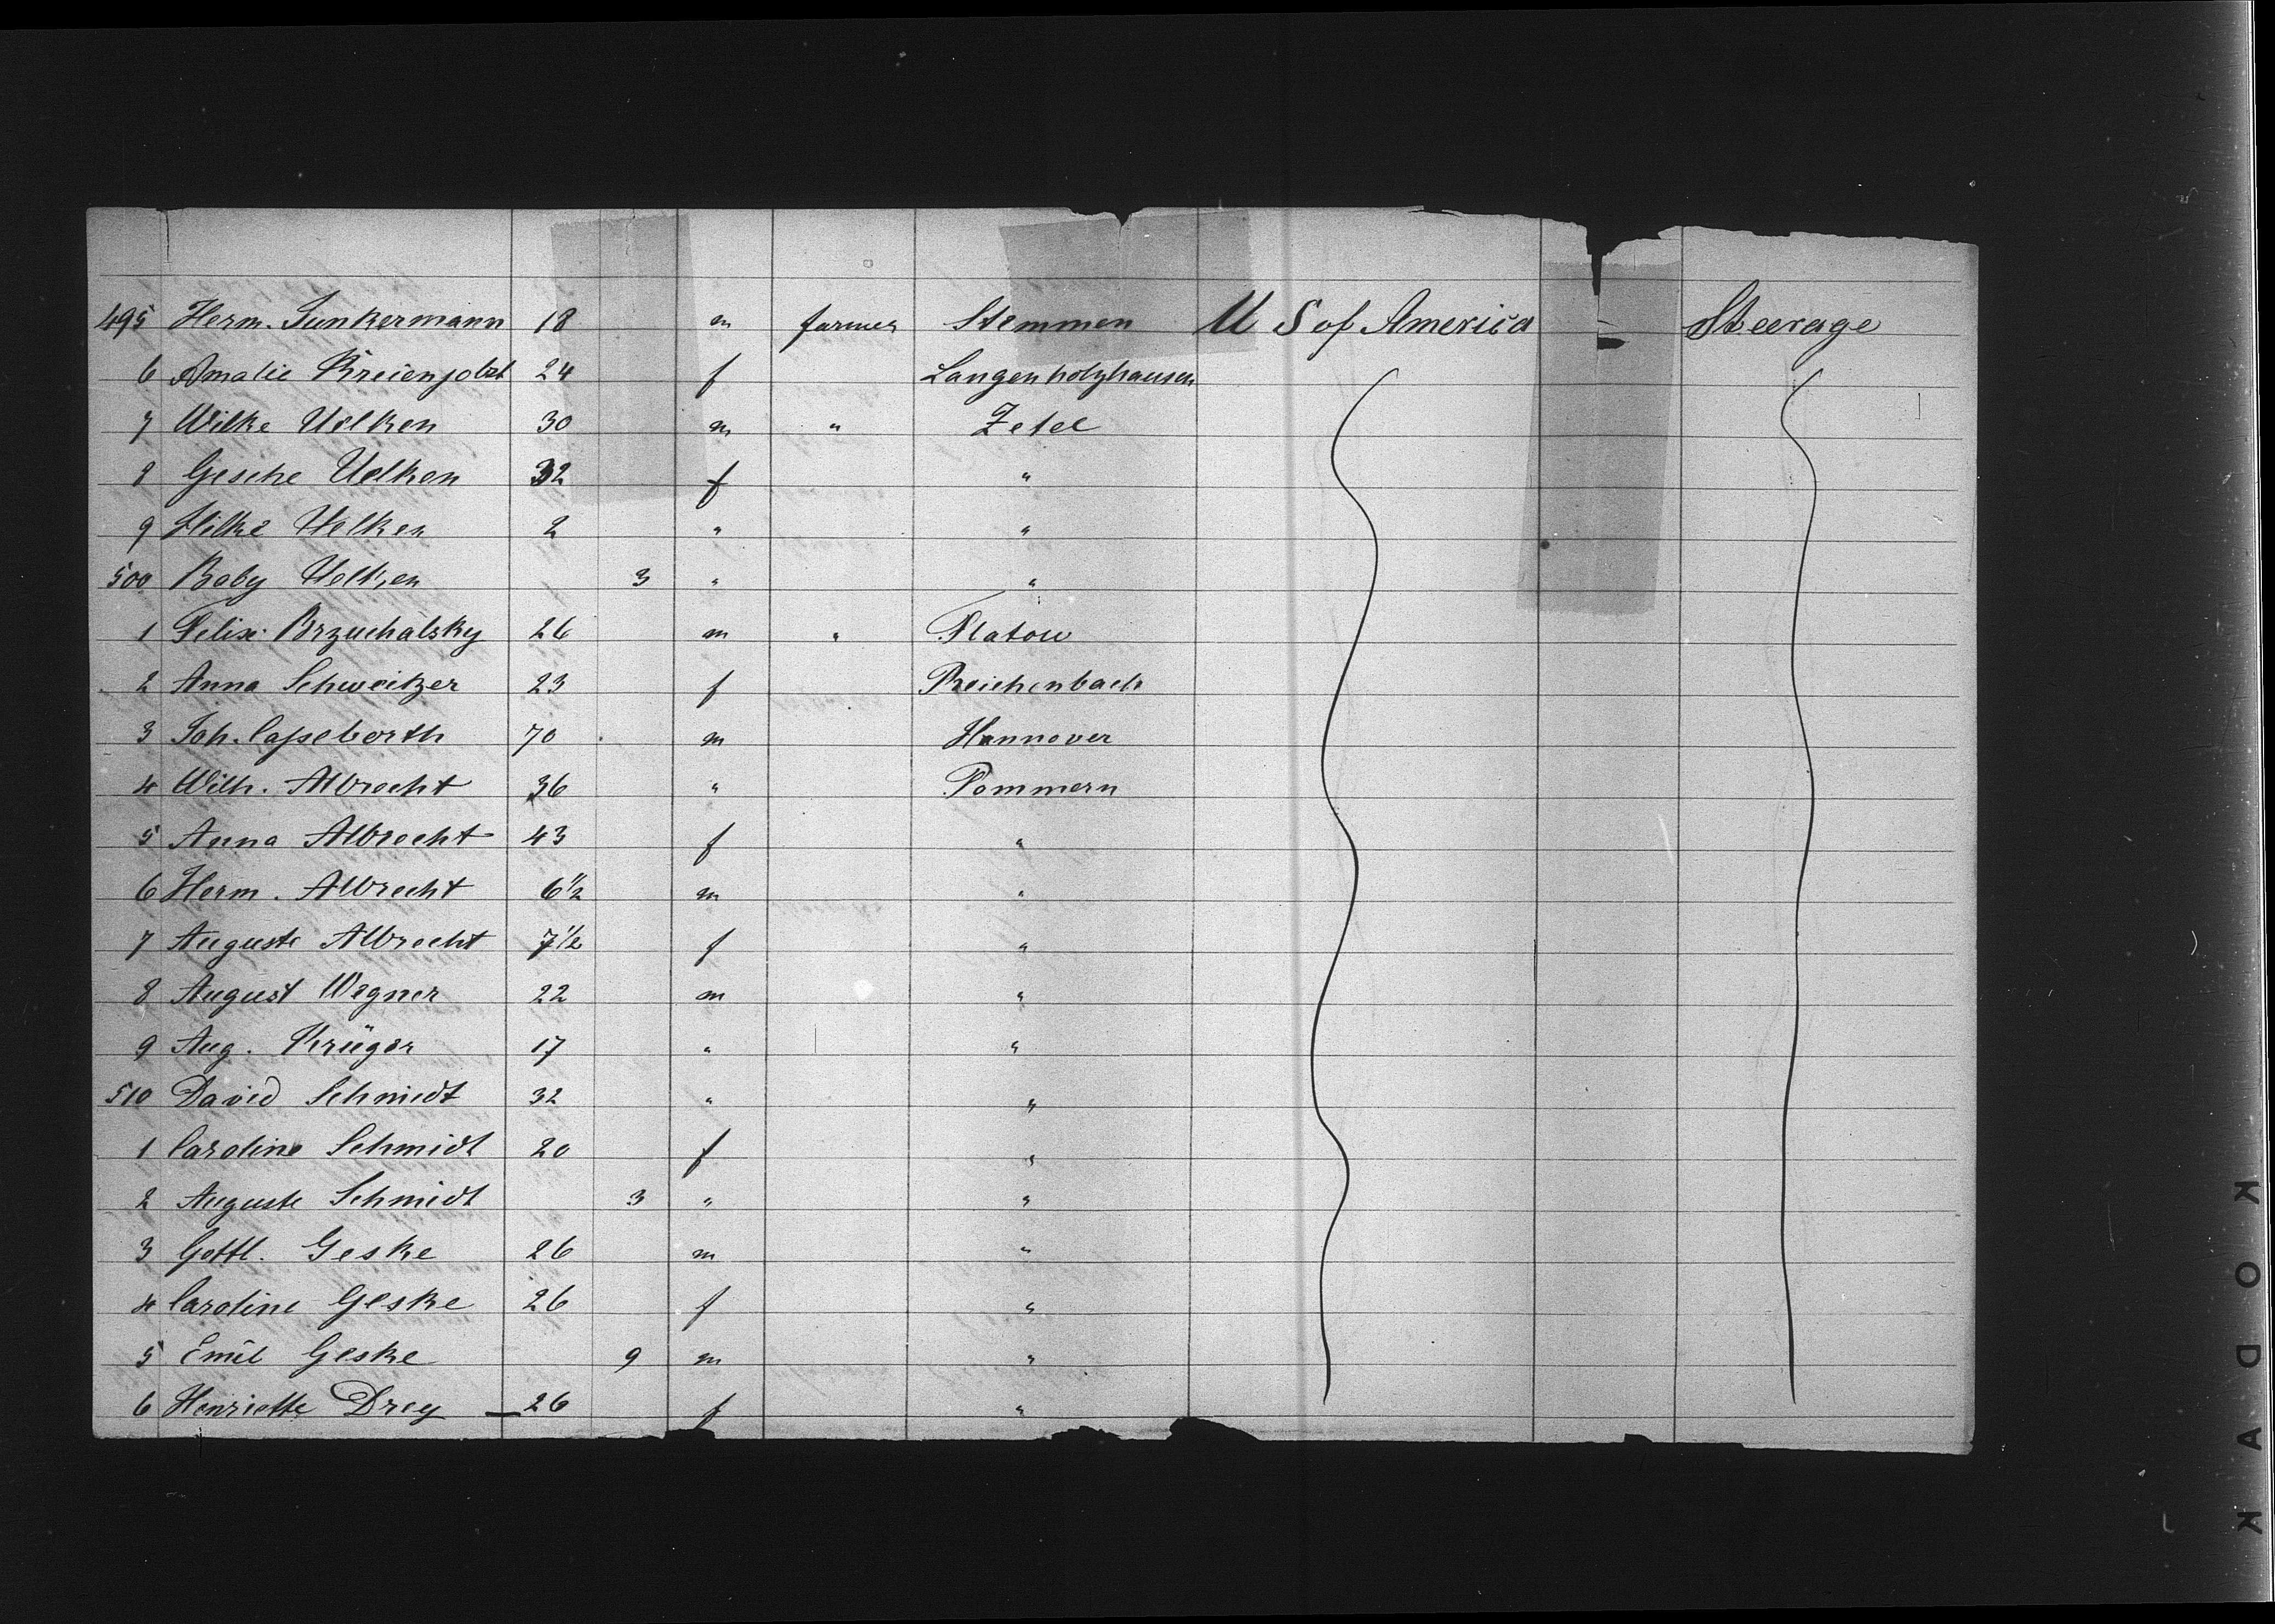 495 Herm. Junkermann 18 m farmer Stemmen U S of America Steerage
6 Amalie 24 f Langenholzhausen
7 Wilke Uelken 30 m " Zetel
8 Gesche Uelken 32 f "
9 Hilke Uelken 2 " "
500 Baby Uelken 3 " "
1 Felix Brzuchalsky 26 m " Flatow
2 Anna Schweitzer 23 f Reichenbach
3 Joh. Casseborth 70 m Hannover
4 Wilh. Albrecht 36 " Pommern
5 Anna Albrecht 43 f "
6 Herm. Albrecht 6 1/2 m "
7 Auguste Albrecht 7 1/2 f "
8 August Wegner 22 m "
9 Aug. Krüger 17 " "
510 David Schmidt 32 " "
1 Caroline Schmidt 20 f "
2 Auguste Schmidt 3 " "
3 Gottl. Geske 26 m "
4 Caroline Geske 26 f "
5 Emil Geske 9 m "
6 Henriette Drey — 26 f "
KODAK